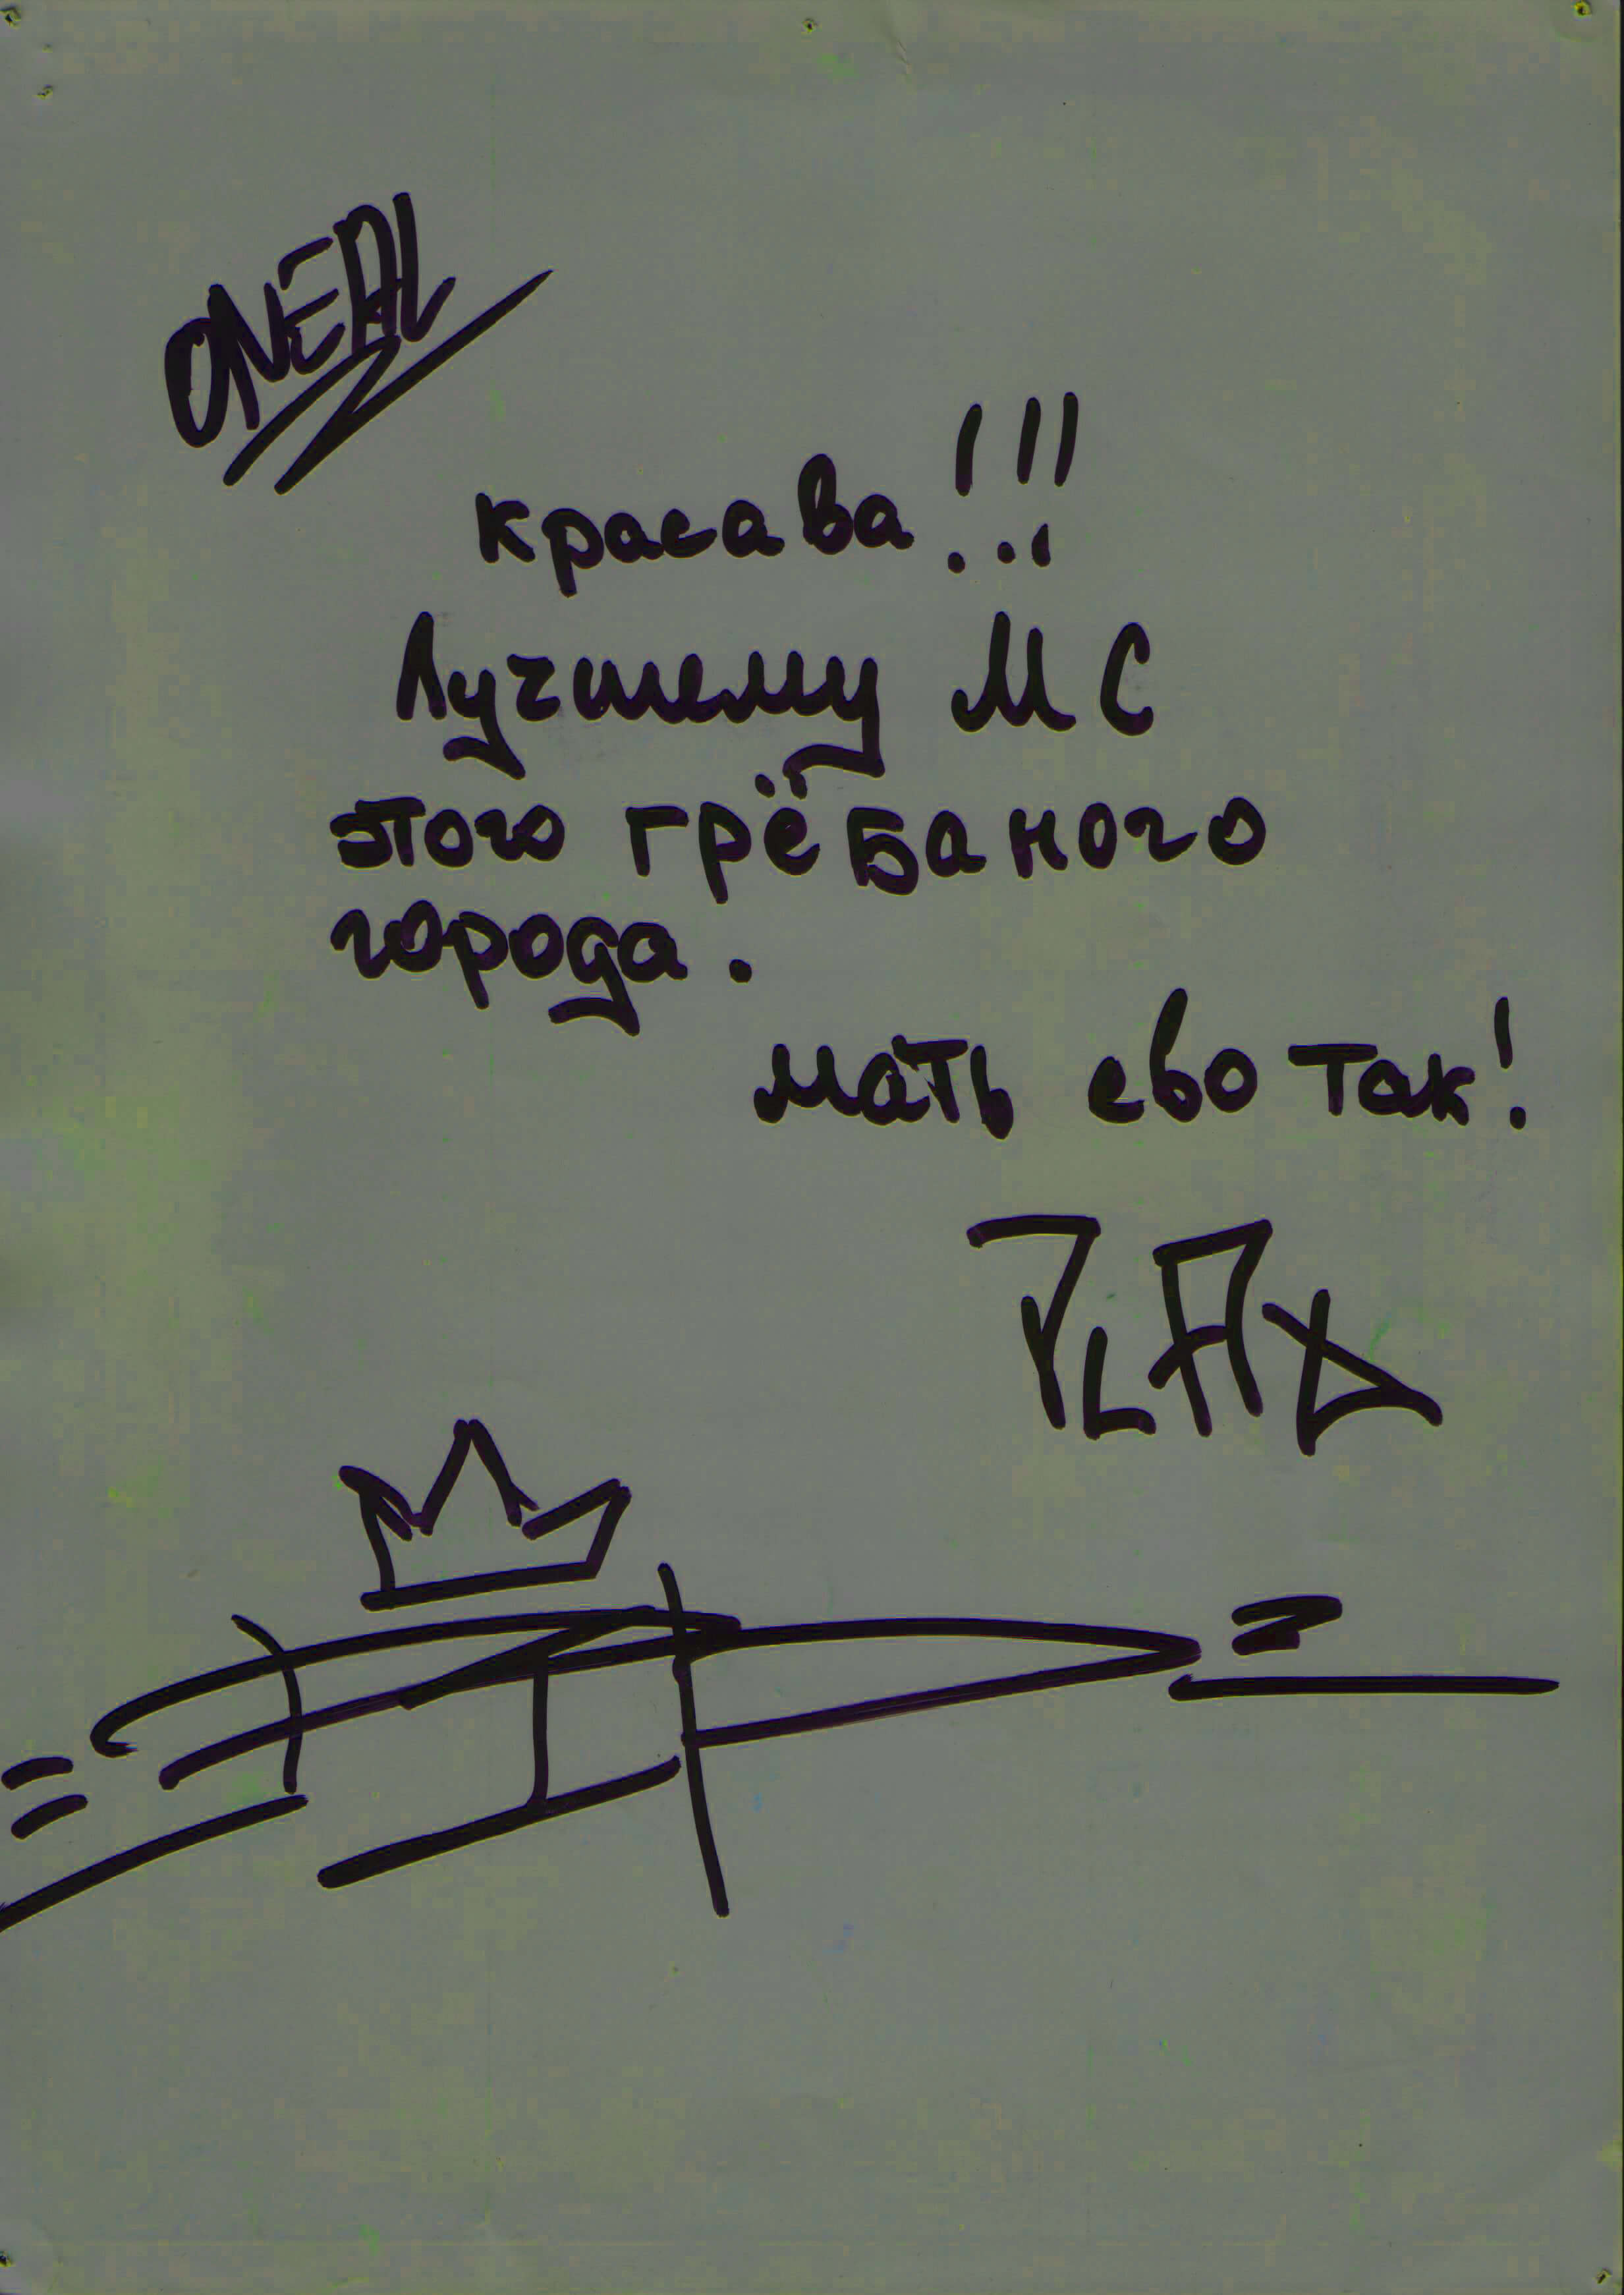 ONEAL
красава!!!
Лучшему МС
этого грёбаного
города.
мать ево так!